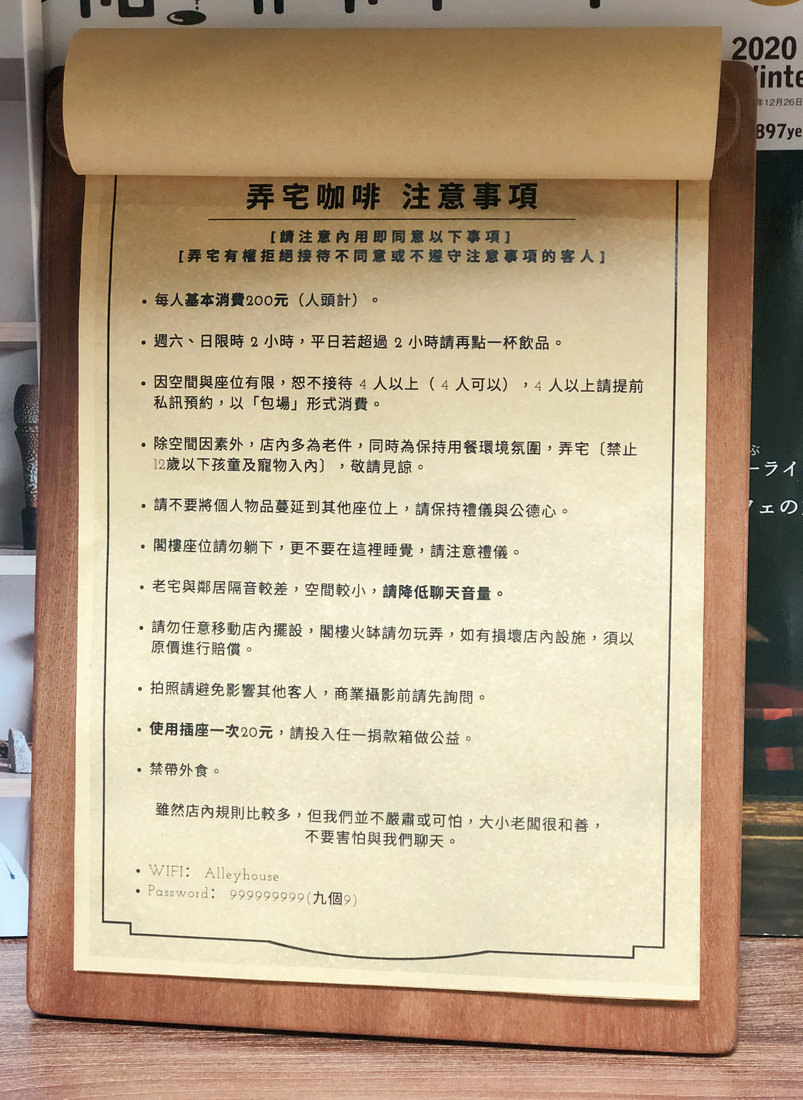 2020
Winte
年12月26日
897ye
弄宅咖啡 注意事項
[請注意內用即同意以下事項]
[弄宅有權拒絕接待不同意或不遵守注意事項的客人]
• 每人基本消費200元（人頭計）。
• 週六、日限時 2 小時，平日若超過 2 小時請再點一杯飲品。
• 因空間與座位有限，恕不接待 4 人以上（ 4 人可以），4 人以上請提前
私訊預約，以「包場」形式消費。
• 除空間因素外，店內多為老件，同時為保持用餐環境氛圍，弄宅〔禁止
12歲以下孩童及寵物入內〕，敬請見諒。
• 請不要將個人物品蔓延到其他座位上，請保持禮儀與公德心。
• 閣樓座位請勿躺下，更不要在這裡睡覺，請注意禮儀。
• 老宅與鄰居隔音較差，空間較小，請降低聊天音量。
• 請勿任意移動店內擺設，閣樓火缽請勿玩弄，如有損壞店內設施，須以
原價進行賠償。
• 拍照請避免影響其他客人，商業攝影前請先詢問。
• 使用插座一次20元，請投入任一捐款箱做公益。
• 禁帶外食。
雖然店內規則比較多，但我們並不嚴肅或可怕，大小老闆很和善，
不要害怕與我們聊天。
• WIFI： Alleyhouse
• Password： 999999999(九個9)
ーライ
フェの